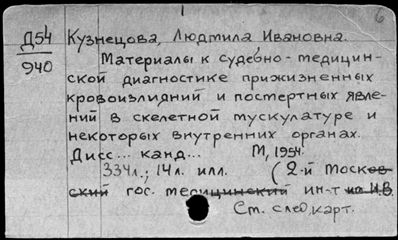 6
Д54
940
Кузнецова, Людмила Ивановна.
Материалы к судебно-медицин-
ской диагностике прижизненных
кровоизлияний и посмертных явле-
ний в скелетной мускулатуре и
некоторых внутренних органах.
Дисс... канд... М, 1954.
334л.; 14л. илл. (2-й Москов-
ский гос. медицинский ин-т им. И.В.
См. след. карт.